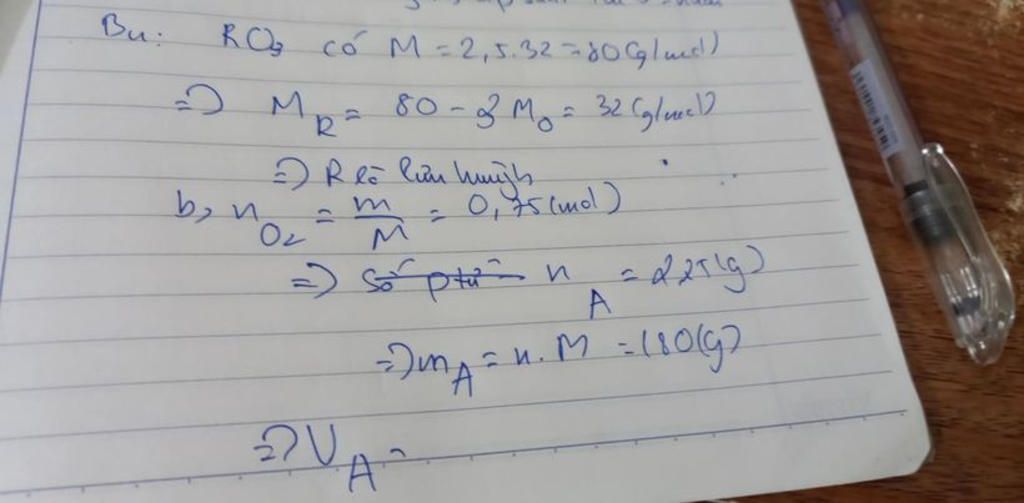 Bu: RO3 có M = 2,5.32 = 80(g/mol)
=) MR = 80 - 3 MO = 32(g/mol)
=) R là lưu huỳnh
b, nO2 = m/M = 0,75(mol)
=) Số ptử nA = 2,25(g)
=) mA = n.M = 180(g)
=) VA =